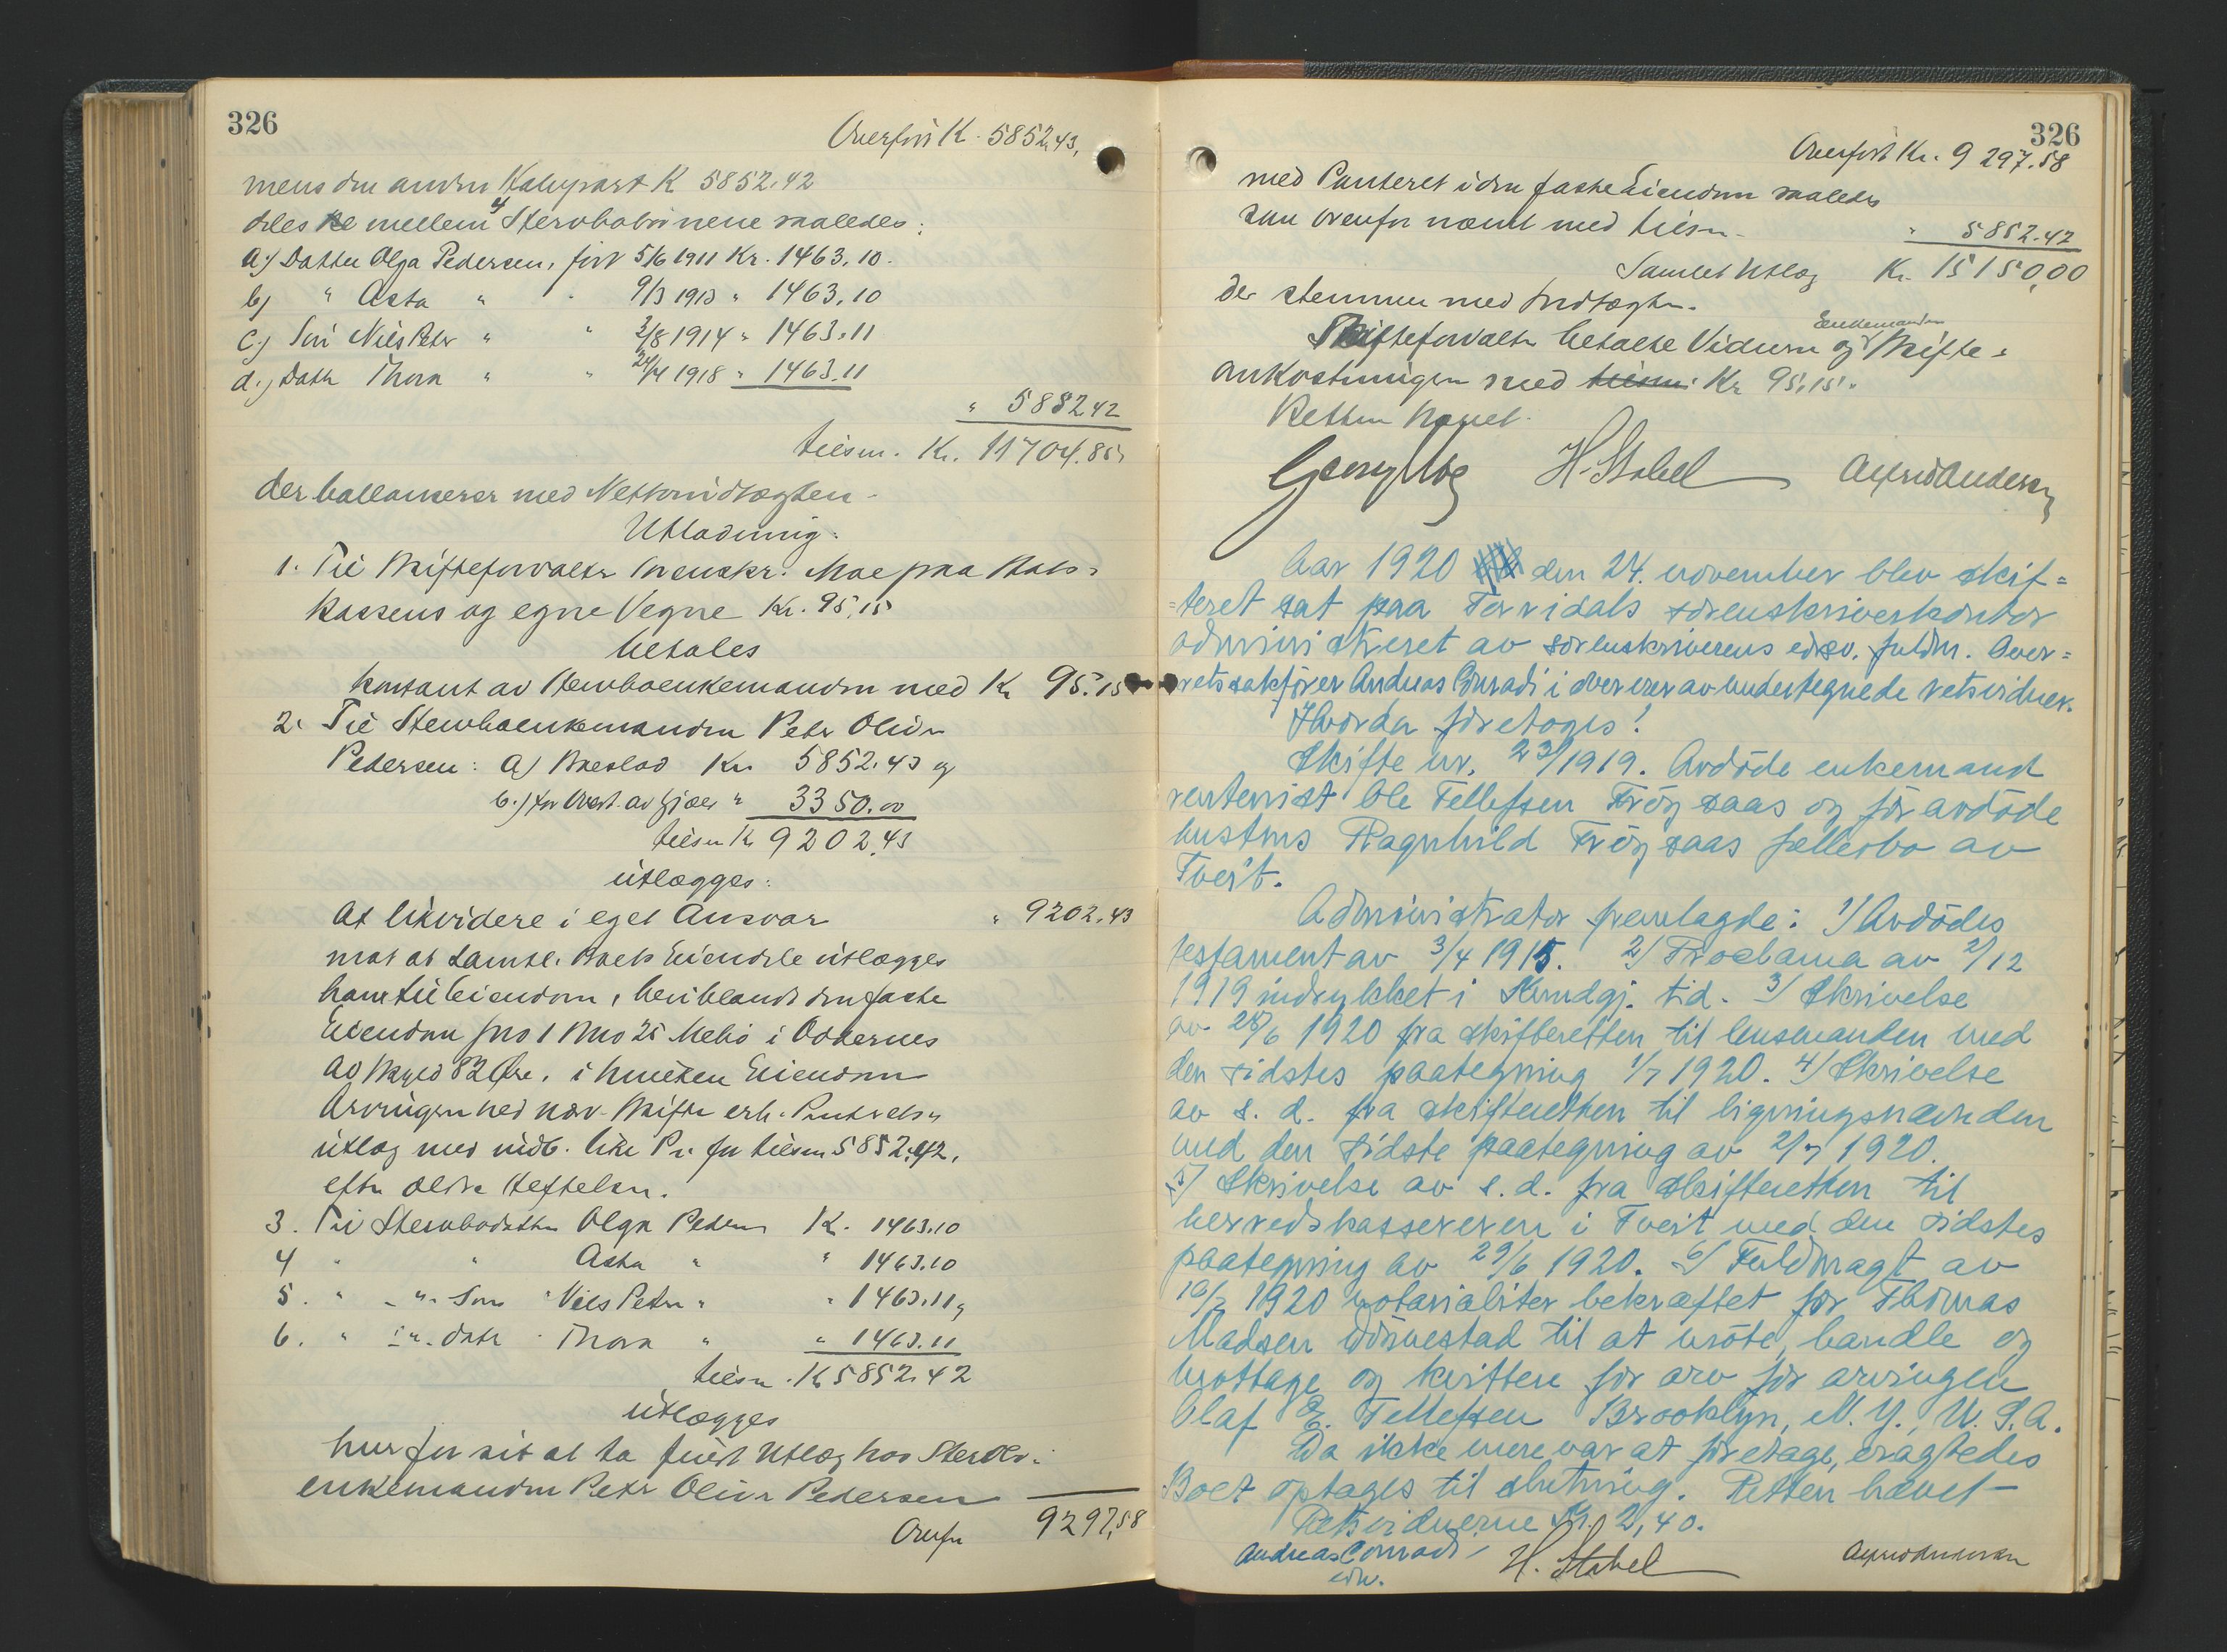 326
Overført K. 5852,43,
mens den anden Halvpart K 5852.42
deles mellem 4 Stervbobørnene saaledes:
a.) Datter Olga Pedersen, født 5/6 1911 Kr. 1463.10.
b) " Asta " " 9/3 1913 " 1463.10
c.) Søn Niels Peter " " 3/8 1914 " 1463.11
d.) Datter Thora " " 24/4 1918 " 1463.11
" 5852.42
tilsm. Kr. 11704.85
der ballanserer med Nettoindtægten.
Utlodning:
1. Til Skifteforvalter Sorenskr. Moe paa Stats-
kassens og egne Vegne Kr. 95.15
betales
kontant av Stervboenkemanden med Kr 95.15
2. Til Stervboenkemanden Peter Oliver
Pedersen: a) Boeslod Kr. 5852.43 og
b.) for Overt. av Gjæld " 3350.00
tilsm K 9202.43
utlægges:
At likvidere i eget Ansvar " 9202.43
mot at samtl. Boets Eiendele utlægges
ham til Eiendom, heriblandt den faste
Eiendom Gno 1 Bno 25 i Oddernes
av Skyld 82 Øre, i hvilken Eiendom
Arvingen ved nærv. Skifte erh. Panterets-
utlæg med indb. like Pr. for tilsm 5852.42,
efter ældre Heftelser.
3. Til Stervbodatter Olga Pedersen K. 1463.10
4 " " Asta " " 1463.10
5. " " Søn Niels Peter " " 1463.11
6. " " datr Thora " " 1463.11
tilsm. K 5852.42
utlægges
hver for sit at ta fuldt Utlæg hos Stervbo-
enkemanden Peter Oliver Pedersen
Overfør 9297,58
326
Overført Kr. 9297.58
med Panteret i den faste Eiendom saaledes
som ovenfor nævnt med tilsm. " 5852.42
Samlet Utlæg Kr. 15150,00
der stemmer med Indtægten.
Enkemanden
Skifteforvalter betalte Vidnerne og Skifte-
omkostningen med tilsm. Kr 95.15.
Retten hævet.
Georg Moe H. Stabel Alfred Andersen
Aar 1920 den 24. november blev skif=
=teret sat paa Torridals sorenskriverkontor
administreret av sorenskriverens edsv. fuldm. Over=
retssakfører Andreas Conradi i overvær av undertegnede retsvidner.
Hvorda foretoges:
Skifte nr. 23/1919. Avdøde enkemand
rentenist Ole Tellefsen Frøysaas og før avdøde
hustrus Ragnhild Frøysaas fællesbo av
Tveit.
Administrator fremlagde: 1/ Avdødes
testament av 3/4 1915. 2/ Proclama av 2/12
1919 indrykket i Kundgj. tid. 3/ Skrivelse
av 28/6 1920 fra skifteretten til lensmanden med
den sidstes paategning 1/7 1920. 4/ Skrivelse
av s. d. fra skifteretten til ligningsnævnden
med den sidste paategning av 2/7 1920.
5/ Skrivelse av s. d. fra skifteretten til
herredskassereren i Tveit med den sidstes
paategning av 29/6 1920. 6/ Fuldmagt av
10/7 1920 notarialiter bekræftet for Thomas
Madsen til at møte, handle og
mottage og kvittere for arv for arvingen
Olaf E. Tellefsen Brooklyn, N. Y., U. S. A.
Da ikke mere var at foretage, eragtedes
Boet optages til slutning. Retten hævet -
Retsvidnerne Kr. 2,40.
Andreas Conradi H. Stabel Alfred Andersen
edsv.